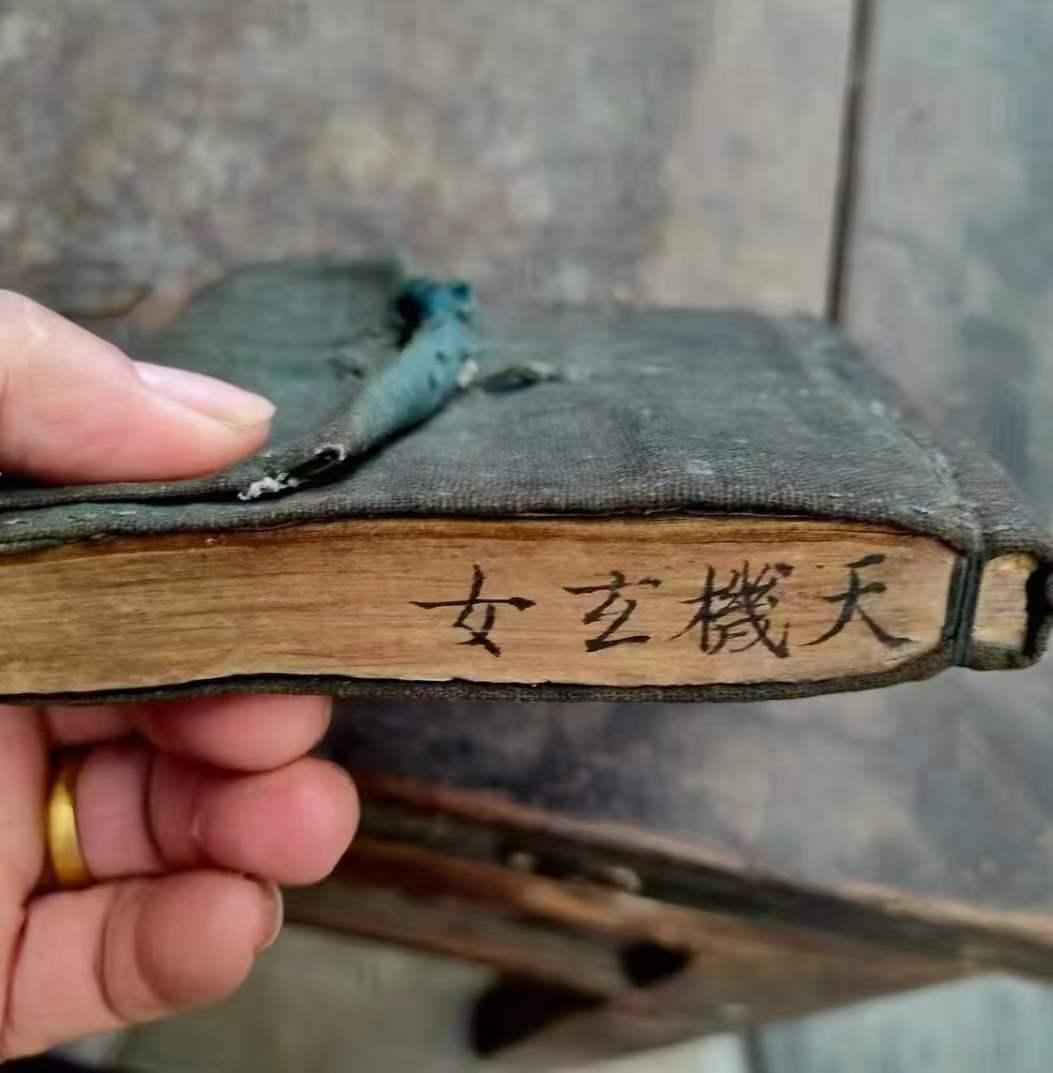 天機玄女